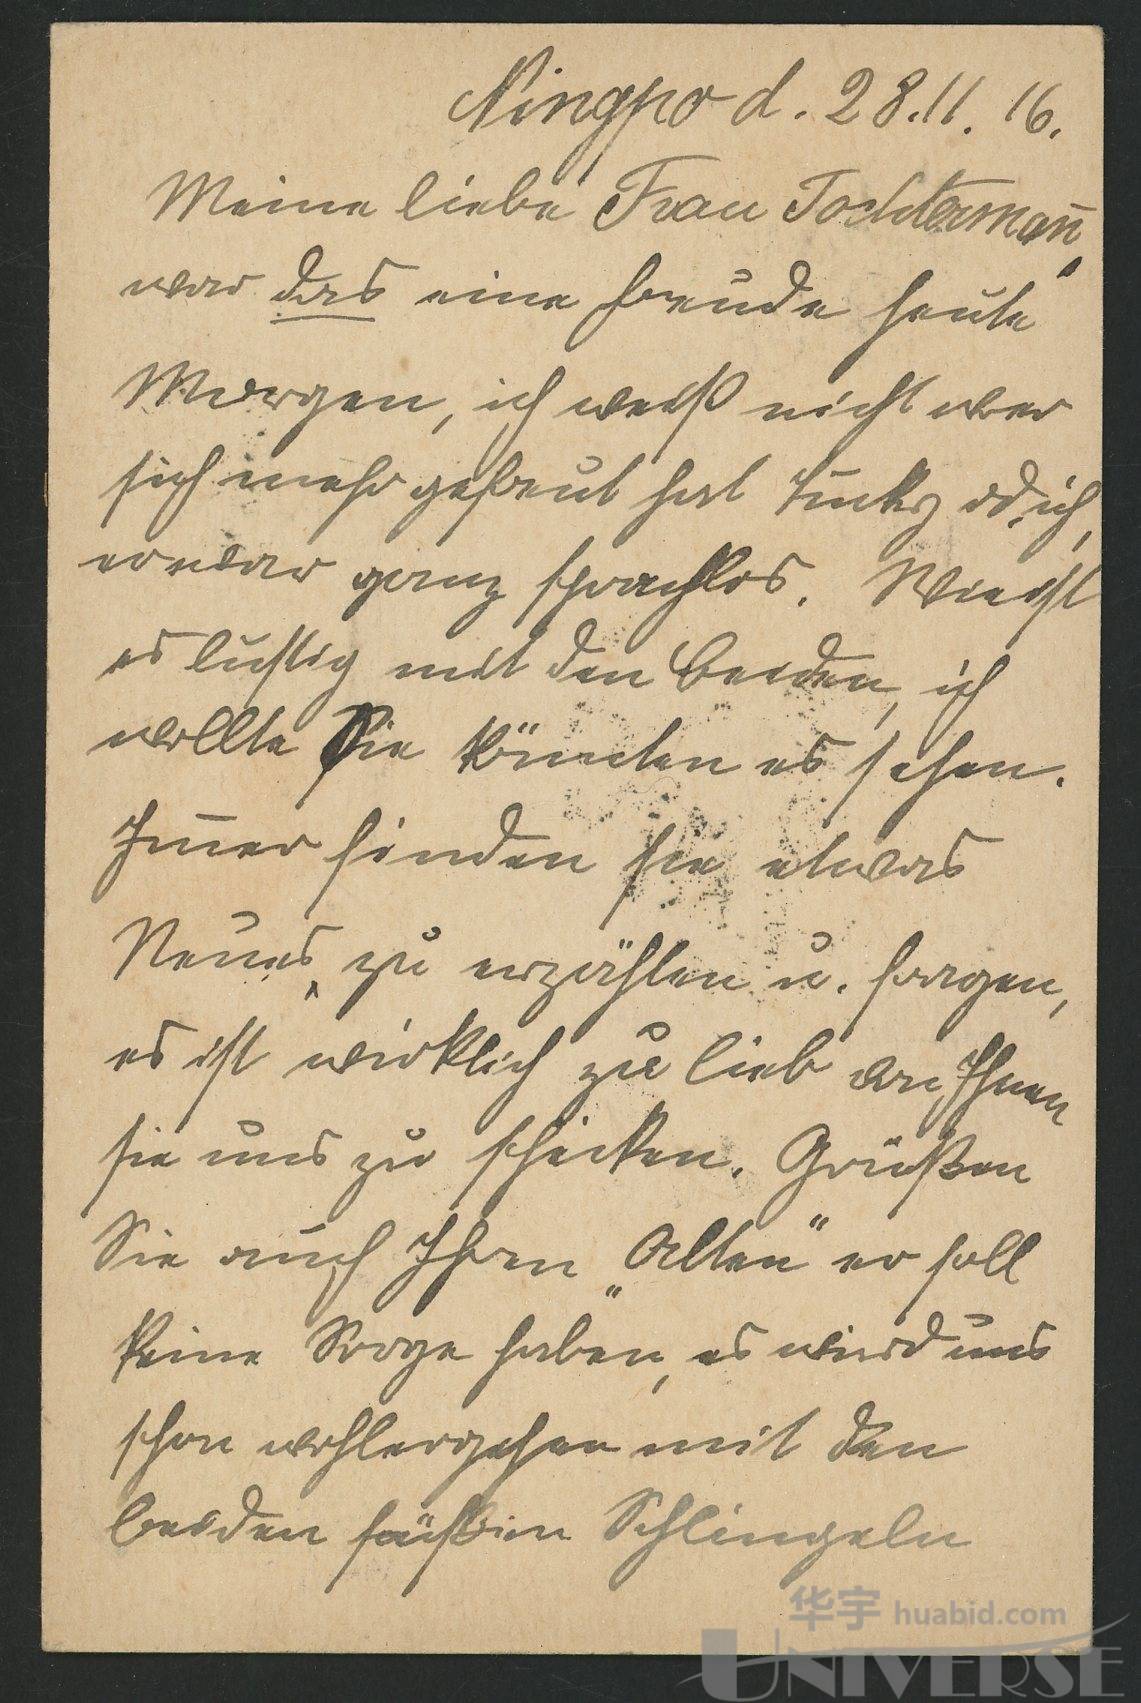 Ningpo d. 28.11.16.
Meine liebe Frau Tochtermañ,
war das eine Freude heute
Morgen, ich weiß nicht wer
sich mehr gefreut hat od. ich,
er war ganz sprachlos. Wie ist
es lustig mit den beiden, ich
wollte Sie könnten es sehen.
Im̄er finden sie etwas
Neues, zu erzählen u. fragen,
es ist wirklich zu lieb von Ihnen
sie uns zu schicken. Grüßen
Sie auch Ihren „Alten“ er soll
keine Sorge haben, es wird uns
schon wohlergehen mit den
beiden Schlingeln
华宇 huabid.com
UNIVERSE